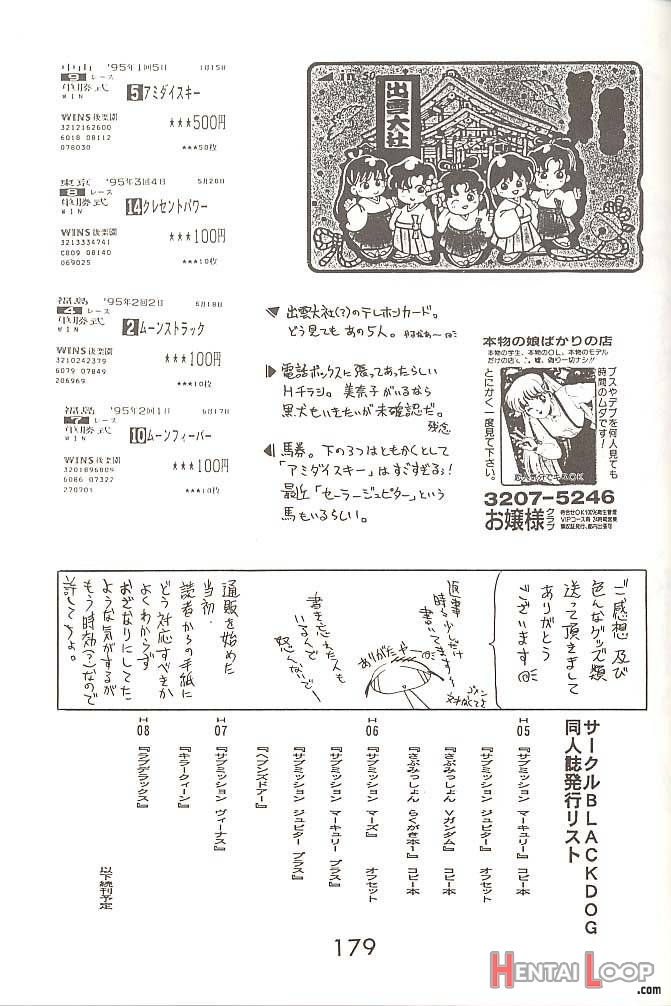 中山 '95年1回5日 1月15日
9 レース
単勝式 5 アミダイスキー
WIN
WINS後楽園
3212162600
6018 08112
078030
★★★500円
★★★50枚
東京 '95年3回4日 5月20日
8 レース
単勝式 14 クレセントパワー
WIN
WINS後楽園
3213334741
C809 08140
069025
★★★100円
★★★10枚
福島 '95年2回2日 6月18日
4 レース
単勝式 2 ムーンストラック
WIN
WINS後楽園
3210242379
6079 07849
206969
★★★100円
★★★10枚
福島 '95年2回1日 6月17日
7 レース
単勝式 10 ムーンフィーバー
WIN
WINS後楽園
3201896809
6086 07322
270701
★★★100円
★★★10枚
50
出雲大社
出雲大社(?)のテレホンカード。
どう見てもあの5人。
電話ボックスに張ってあったらしい
Hチラシ。美奈子がいるなら
黒犬もいきたいが未確認だ。
残念
馬券。下の3つはともかくとして
「アミダイスキー」はすごすぎる!
最近「セーラージュピター」という
馬もいるらしい。
本物の娘ばかりの店
本物の学生、本物のOL、本物のモデル
だけの店く、嘘、偽り一切ナシ!!
ブスやデブを何人見ても
時間のムダです!
とにかく一度見て下さい。
3207-5246
お嬢様クラブ
待合せOK100%衛生管理
VIPコース有 24時間営業
領収証発行、都内出張可
ご感想 及び
色んなグッズ類
送って頂きまして
ありがとう
ございます
返事
時々少しだけ
書いてますが
ありがたや
書き忘れた人も
いるくで
怒くないでー
通販を始めた
当初、
読者からの手紙に
どう対応すべきか
よくわからず
おざなりにしてた
ような気がするが
もう時効(?)なので
許してちょ。
サークルBLACKDOG
同人誌発行リスト
H05
『サブミッション マーキュリー』 コピー本
『サブミッション ジュピター』 オフセット
『さぶみっしょん Vガンダム』 コピー本
『さぶみっしょん らくがきホー』 コピー本
H06
『サブミッション マーズ』 オフセット
『サブミッション マーキュリー プラス』
『サブミッション ジュピター プラス』
『ヘブンズドアー』
H07
『サブミッション ヴィーナス』
『キラークィーン』
H08
『ラブデラックス』
以下続刊予定
179
HENTAI LOOP
.com